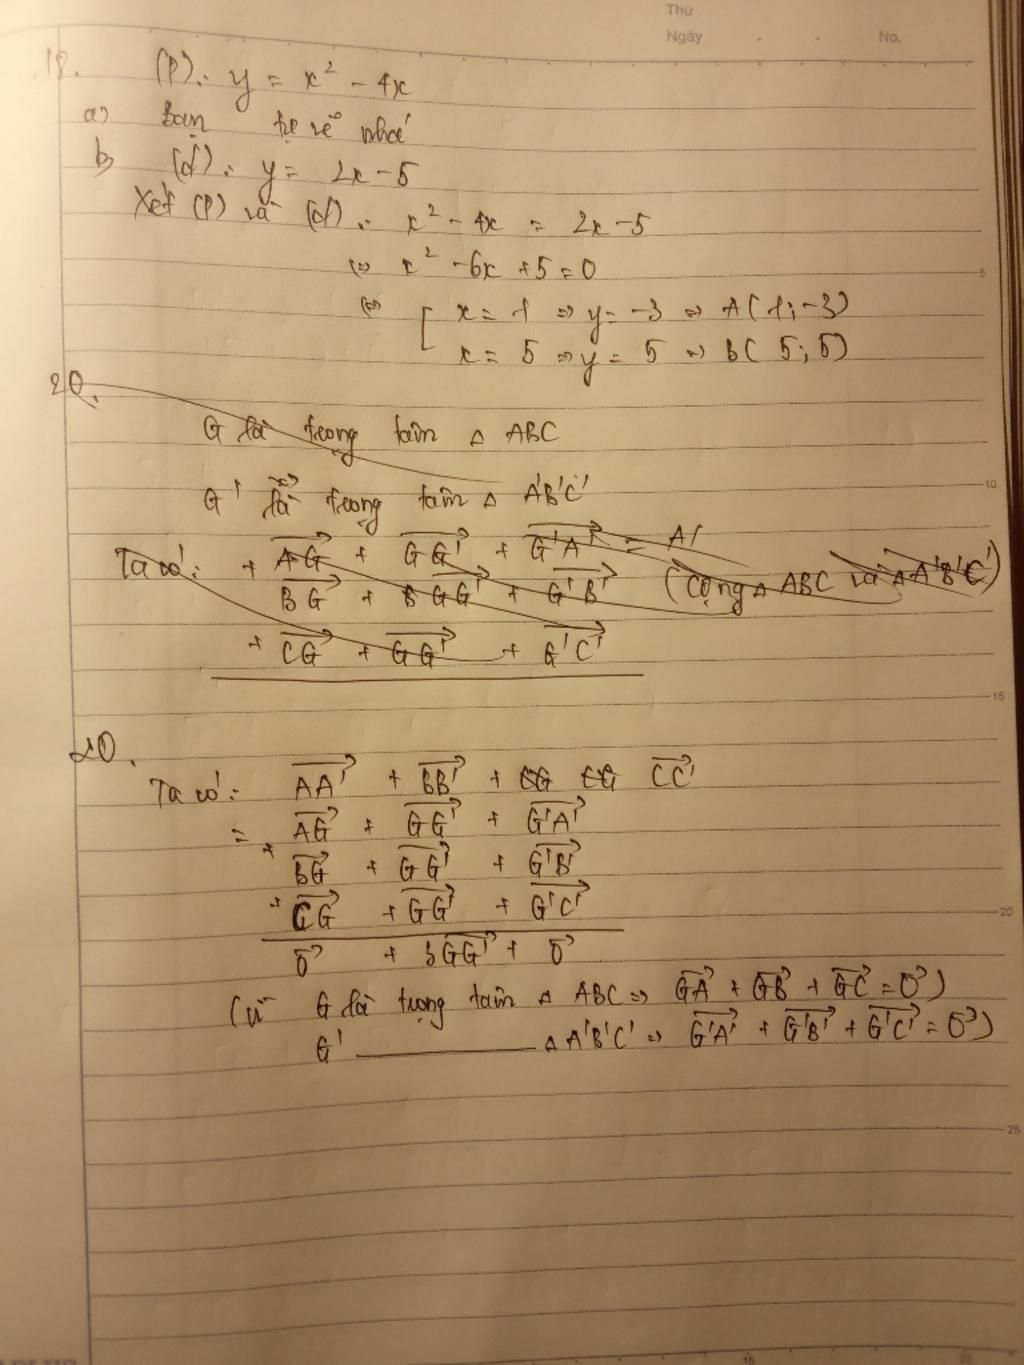 Thứ
Ngày . . No.
18. (P): y = x² - 4x
a) Bạn tự vẽ nhá
b) (d): y = 2x - 5
Xét (P) và (d): x² - 4x = 2x - 5
⇔ x² - 6x + 5 = 0
⇔ [ x = 1 ⇒ y = -3 ⇒ A(1; -3)
x = 5 ⇒ y = 5 ⇒ B(5; 5)
5
20.
G là trọng tâm Δ ABC
G' là trọng tâm Δ A'B'C'
10
Ta có: + AG→ + GG'→ + G'A'→ = A
BG→ + B GG'→ + G'B'→ (Cộng Δ ABC và Δ A'B'C')
+ CG→ + GG'→ + G'C'→
15
20.
Ta có: AA'→ + BB'→ + CG CG CC'→
= AG→ + GG'→ + G'A'→
+ BG→ + GG'→ + G'B'→
+ CG→ + GG'→ + G'C'→
20
0→ + 3GG'→ + 0→
(Vì G là trọng tâm Δ ABC ⇒ GA→ + GB→ + GC→ = 0→)
G' ———— Δ A'B'C' ⇒ G'A'→ + G'B'→ + G'C'→ = 0→)
25
15